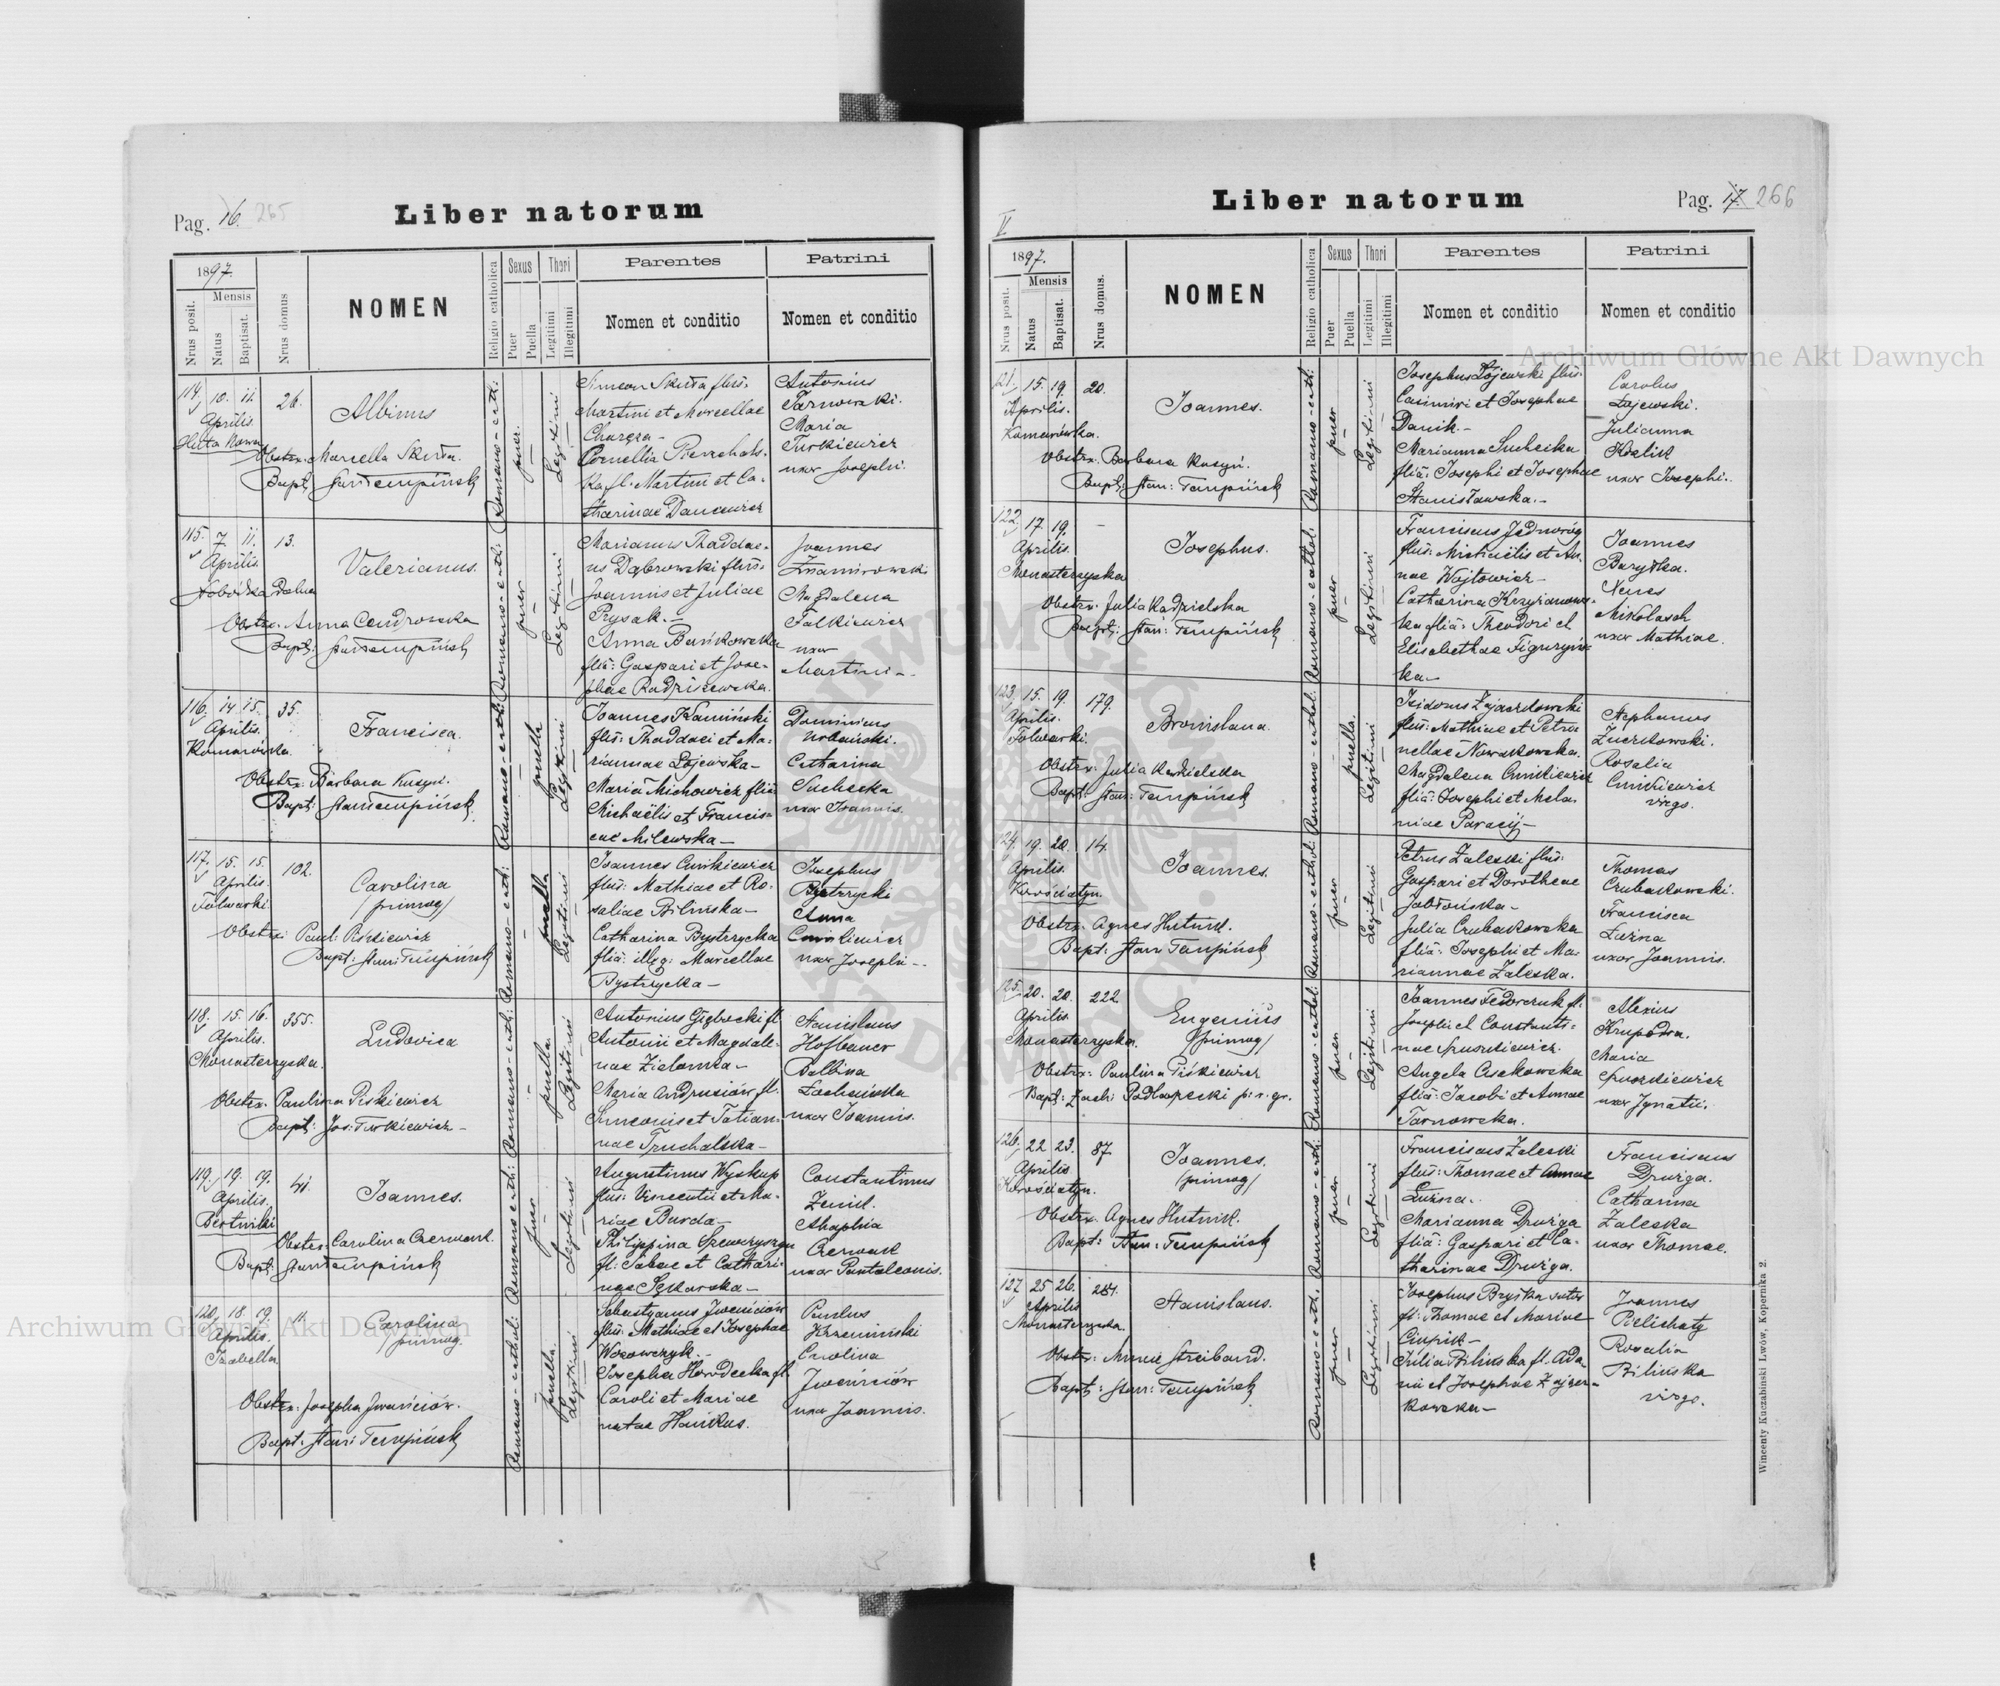 Pag. 16. 265
Liber natorum
1897.
Nrus posit.
Mensis
Natus
Baptisat.
Nrus domus
NOMEN
Religio catholica
Sexus
Puer
Puella
Thori
Legitimi
Illegitimi
Parentes
Nomen et conditio
Patrini
Nomen et conditio
114. 10. 11. 26.
Aprilis.
Huta Nowa
Albinus
Obstx. Marcella Skerta.
Bapt:
Romano-cath:
puer.
Legitimi
Simeon Skerta flus:
Martini et Marcellae
Cornellia
ka fl. Martini et Ca-
tharinae Dancewicz
Antonius
Tarnowski.
Maria
Turkiewicz
uxor Josephi.
115. 7. 11. 13.
Aprilis.
Valerianus.
Obstx. Anna
Bapt:
Romano-cath:
puer
Legitimi
Marianus Thaddae-
us Dąbrowski flus:
Joannis et Juliae
Prysak.-
Anna Bańkowska
flia: Gaspari et Jose-
phae Radziszewska.
Joannes
Znamirowski
Magdalena
Falkiewicz
uxor
Martini-
116. 14. 15. 35.
Aprilis.
Komarówka.
Francisca.
Obstx: Barbara Kusyń.
Bapt:
Romano-cath:
puella
Legitimi
Joannes Kamiński
flus: Thaddaei et Ma-
riannae Łojewska-
Maria Michowicz flia:
Michaëlis et Francis-
cae Milewska-
Dominicus
Urbański.
Catharina
Suchecka
uxor Joannis.
117. 15. 15. 102.
Aprilis.
Folwarki.
Carolina
/primog/
Obstx: Paul: Piśkiewicz
Bapt: Stan: Tempiński
Romano-cath:
puella
Legitimi
Joannes Ćwikiewicz
flus: Mathiae et Ro-
saliae Bilińska-
Catharina Bystrzycka
flia: illeg: Marcellae
Bystrzycka-
Josephus
Bystrzycki
Anna
Ćwikiewicz
uxor Josephi-.
118. 15. 16. 355.
Aprilis.
Monasterzyska.
Ludovica
Obstx. Paulina Piskiewicz
Bapt: Jos: Turkiewicz-
Romano-cath:
puella
Legitimi
Antonius Głębocki fl.
Antonii et Magdale-
nae Zielonka-
Maria Andrusiów fl.
Simeonis et Tatian-
nae Truchalska-
Stanislaus
Hofbauer
Balbina
uxor Joannis.
119. 19. 19. 41.
Aprilis.
Bertniki
Joannes.
Obstx: Carolina Czerwonk.
Bapt:
Romano cath:
puer
Legitimi
Augustinus Wyskup
flus: Vincentii et Ma-
riae Burda-
Philippina Szewczyszyn
fl: Sabae et Cathari-
nae Sękowska-
Constantinus
Ahaphia
uxor Pantaleonis.
120. 18. 19. 11.
Aprilis.
Izabella
Carolina
primog.
Obstx: Josepha Iwaniciów.
Bapt: Stan: Tempiński
Romano-cathol:
puella.
Legitimi
Sebastyanus Iwaniciów
flus: Mathiae et Josephae
Wozowczyk.-
Josepha Horodecka fl.
Caroli et Mariae
natae
Paulus
Krzemiński
Carolina
Iwaniciów
uxor Joannis.
II
Liber natorum
Pag. 17. 266
1897.
Nrus posit.
Mensis
Natus
Baptisat.
Nrus domus.
NOMEN
Religio catholica
Sexus
Puer
Puella
Thori
Legitimi
Illegitimi
Parentes
Nomen et conditio
Patrini
Nomen et conditio
121. 15. 19. 20.
Aprilis.
Komarówka.
Joannes.
Obstx. Barbara Kusyń.
Bapt: Stan: Tempiński
Romano-cath:
puer
Legitimi
Josephus Łojewski flus:
Casimiri et Josephae
Danik.-
Marianna Suchecka
flia: Josephi et Josephae
Stanisławska.-
Carolus
Łojewski.
Julianna
uxor Josephi.
122. 17. 19. -
Aprilis.
Monasterzyska
Josephus.
Obstx. Julia Kądzielska
Bapt: Stan: Tempiński
Romano-cathol:
puer
Legitimi
Franciscus Jednoróg
flus: Michaëlis et An-
nae Wojtowicz-
Catharina Krzyżanows-
ka flia: Theodori et
Elisabethae Figurzyńs-
ka-
Joannes
Baryłka.
Nikolasch
uxor Mathiae.
123. 15. 19. 179.
Aprilis.
Folwarki.
Bronislava.
Obstx. Julia Kądzielska
Bapt: Stan: Tempiński
Romano-cathol:
puella.
Legitimi
Isidorus Zajączkowski
flus: Mathiae et Petro-
nellae Nowakowska.
Magdalena Ćwikiewicz
flia: Josephi et Mela-
niae Paracij-
Stephanus
Rosalia
Ćwikiewicz
virgo.
124. 19. 20. 14.
Aprilis.
Korościatyn.
Joannes.
Obstx. Agnes Hutnik.
Bapt: Stan Tempiński
Romano-cathol:
puer
Legitimi
Petrus Zaleski flus:
Gaspari et Dorotheae
Jabłońska-
Julia Czubakowska
flia: Josephi et Ma-
riannae Zaleska.
Thomas
Czubakowski.
Francisca
Łużna
uxor Joannis.
125. 20. 20. 222
Aprilis.
Monasterzyska.
Eugenius
/primog/
Obstx. Paulina Piśkiewicz
Bapt: Zach: Podlaszecki p. r. gr.
Romano-cathol:
puer
Legitimi
Joannes Fedorczuk fl.
Josephi et Constanti-
nae
Angela
flia: Jacobi et Annae
Tarnowska.
Alexius
Maria
uxor Ignatii.
126. 22 23. 87
Aprilis
Korościatyn.
Joannes.
/primog/
Obstx. Agnes Hutnik.
Bapt: Stan: Tempiński
Romano-cath:
puer
Legitimi
Franciscus Zaleski
flus: Thomae et Annae
Łużna.
Marianna Drużga
flia: Gaspari et Ca-
tharinae Drużga.
Franciscus
Drużga.
Catharina
Zaleska
uxor Thomae.
127 25 26.
Aprilis
Monasterzyska.
Stanislaus.
Bapt: Stan: Tempiński
Romano-cath.
puer
Legitimi
Josephus
fl: Thomae et Mariae
Julia Bilińska fl. Ada-
mi et Josephae Zającz-
kowska-
Joannes
Rosalia
Bilińska
virgo.
Wincenty Kuczabinski Lwów, Kopernika 2.
Archiwum Główne Akt Dawnych
Archiwum Główne Akt Dawnych